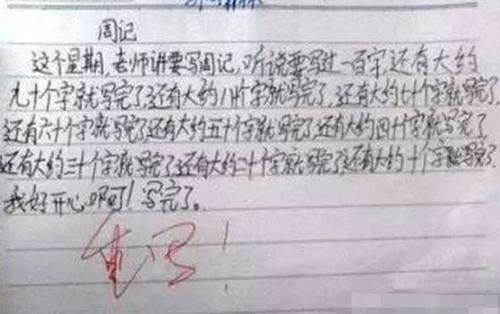 周记
这个星期,老师讲要写周记,听说要写过一百字,还有大约
九十个字就写完了,还有大约八十个字就写完了,还有大约七十个字就写完了,
还有六十个字就写完了,还有大约五十个字就写完了,还有大约四十个字就写完了
还有大约三十个字就写完了,还有大约二十个字就写完了,还有大约十个字就写完了,
我好开心啊!写完了。
重写!